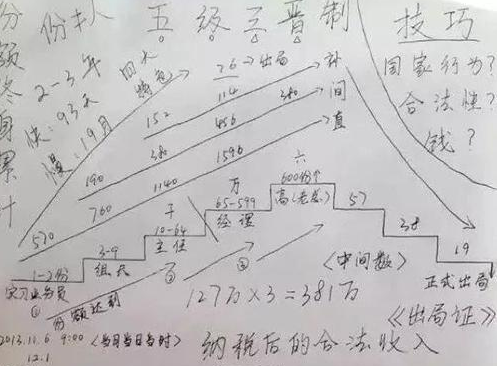 份额终身累计
份扌人 五级三晋制 技巧
2-3年
快:93天
慢:19月
四大
特色
76→出局
补
间
直
国家行为?
合法性?
钱?
152 114
38 456 380
190 1596
760 1140
570
六
600份
高(老总)
万
65-599
经理
千
10-64
主任
3-9
组长
1-2份
实习业务员
①
②
③
57
38
19
正式出局
<中间数>
份额达到
127万×3=381万
《出局证》
2013.11.6 9:00 <当月当日当时>
12.1
纳税后的合法收入